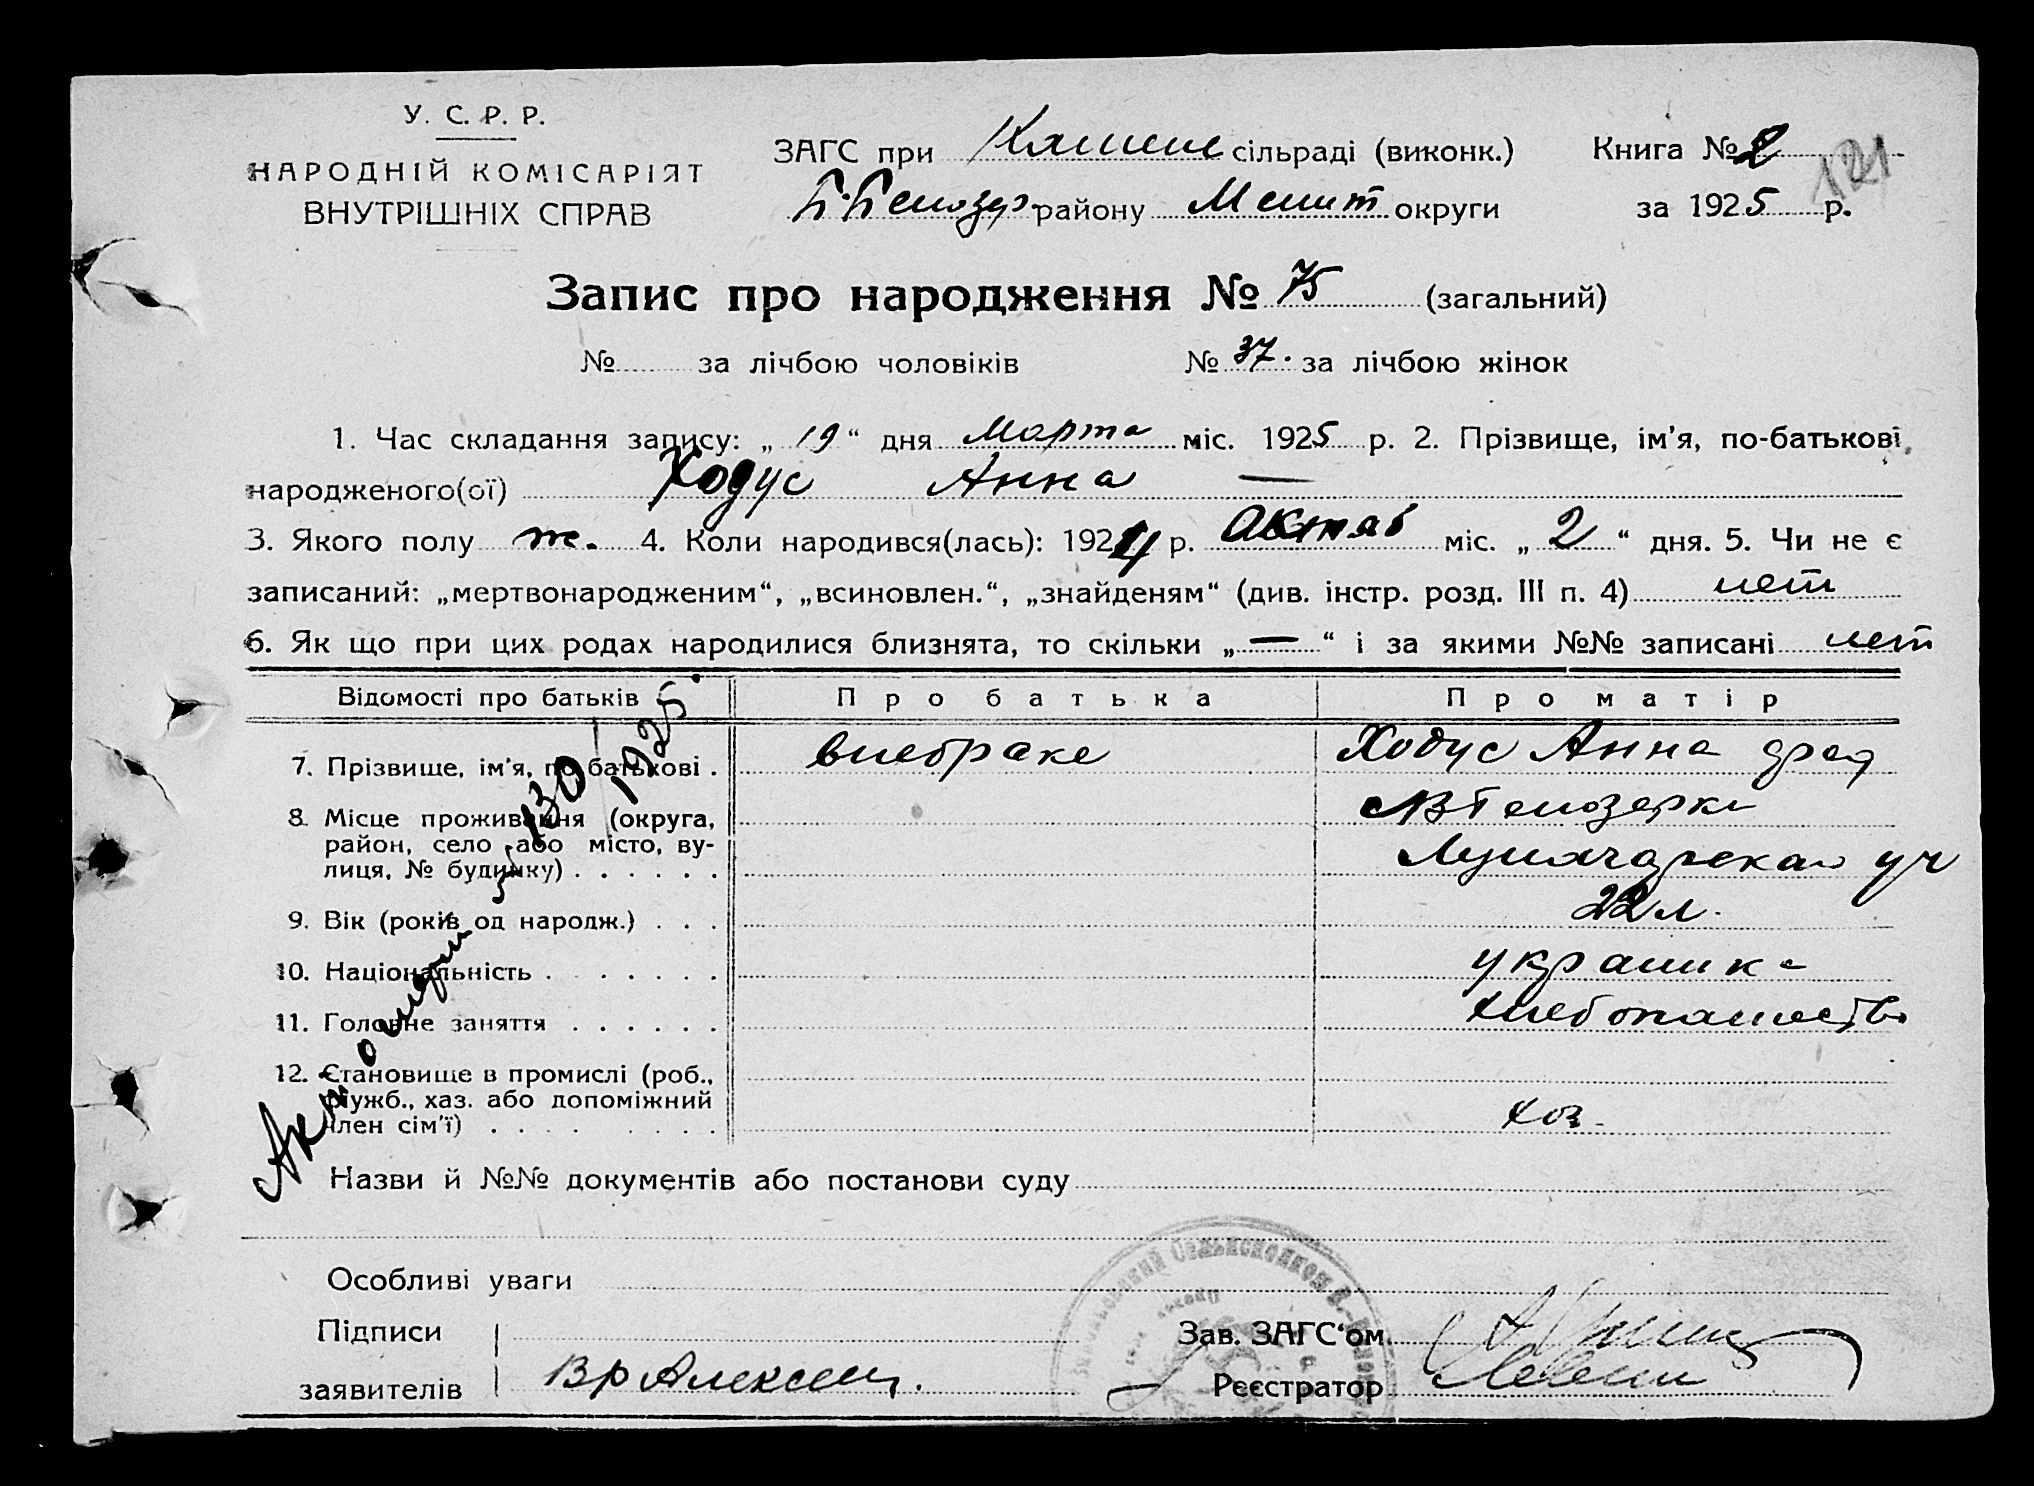 У. С. Р. Р.
НАРОДНІЙ КОМІСАРІЯТ
ВНУТРІШНІХ СПРАВ
ЗАГС при сільраді (виконк.)
Книга № 2
121
району округи
за 1925 р.
Запис про народження № 75 (загальний)
№ за лічбою чоловіків № 37. за лічбою жінок
1. Час складання запису: „ 19 “ дня Марта міс. 1925 р. 2. Прізвище, ім'я, по-батькові
народженого(ої) Ходус Анна —
3. Якого полу ж. 4. Коли народився(лась): 1924 р. Октяб міс. „ 2 “ дня. 5. Чи не є
записаний: „мертвонародженим“, „всиновлен.“, „знайденям“ (див. інстр. розд. III п. 4) нет
6. Як що при цих родах народилися близнята, то скільки „ — “ і за якими №№ записані нет
Відомості про батьків Про батька Про матір
7. Прізвище, ім'я, по батькові . внебраке Ходус Анна
8. Місце проживання (округа,
район, село або місто, ву-
лиця, № будинку) . . . . . .
9. Вік (років од народж.) . . . 22 л.
10. Національність . . . . . . . украинка
11. Головне заняття . . . . . . хлебопашество
12. Становище в промислі (роб.,
служб., хаз. або допоміжний
член сім'ї) . . . . . . . . хоз.
130
1925
Назви й №№ документів або постанови суду
Особливі уваги
Підписи
заявителів Вр Алексеец.
Зав. ЗАГС‘ом
Реєстратор